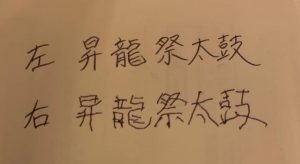 左 昇龍祭太鼓
右 昇龍祭太鼓